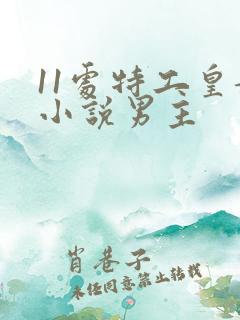 11處特工皇
小說男主
肖巷子
未经同意禁止转载